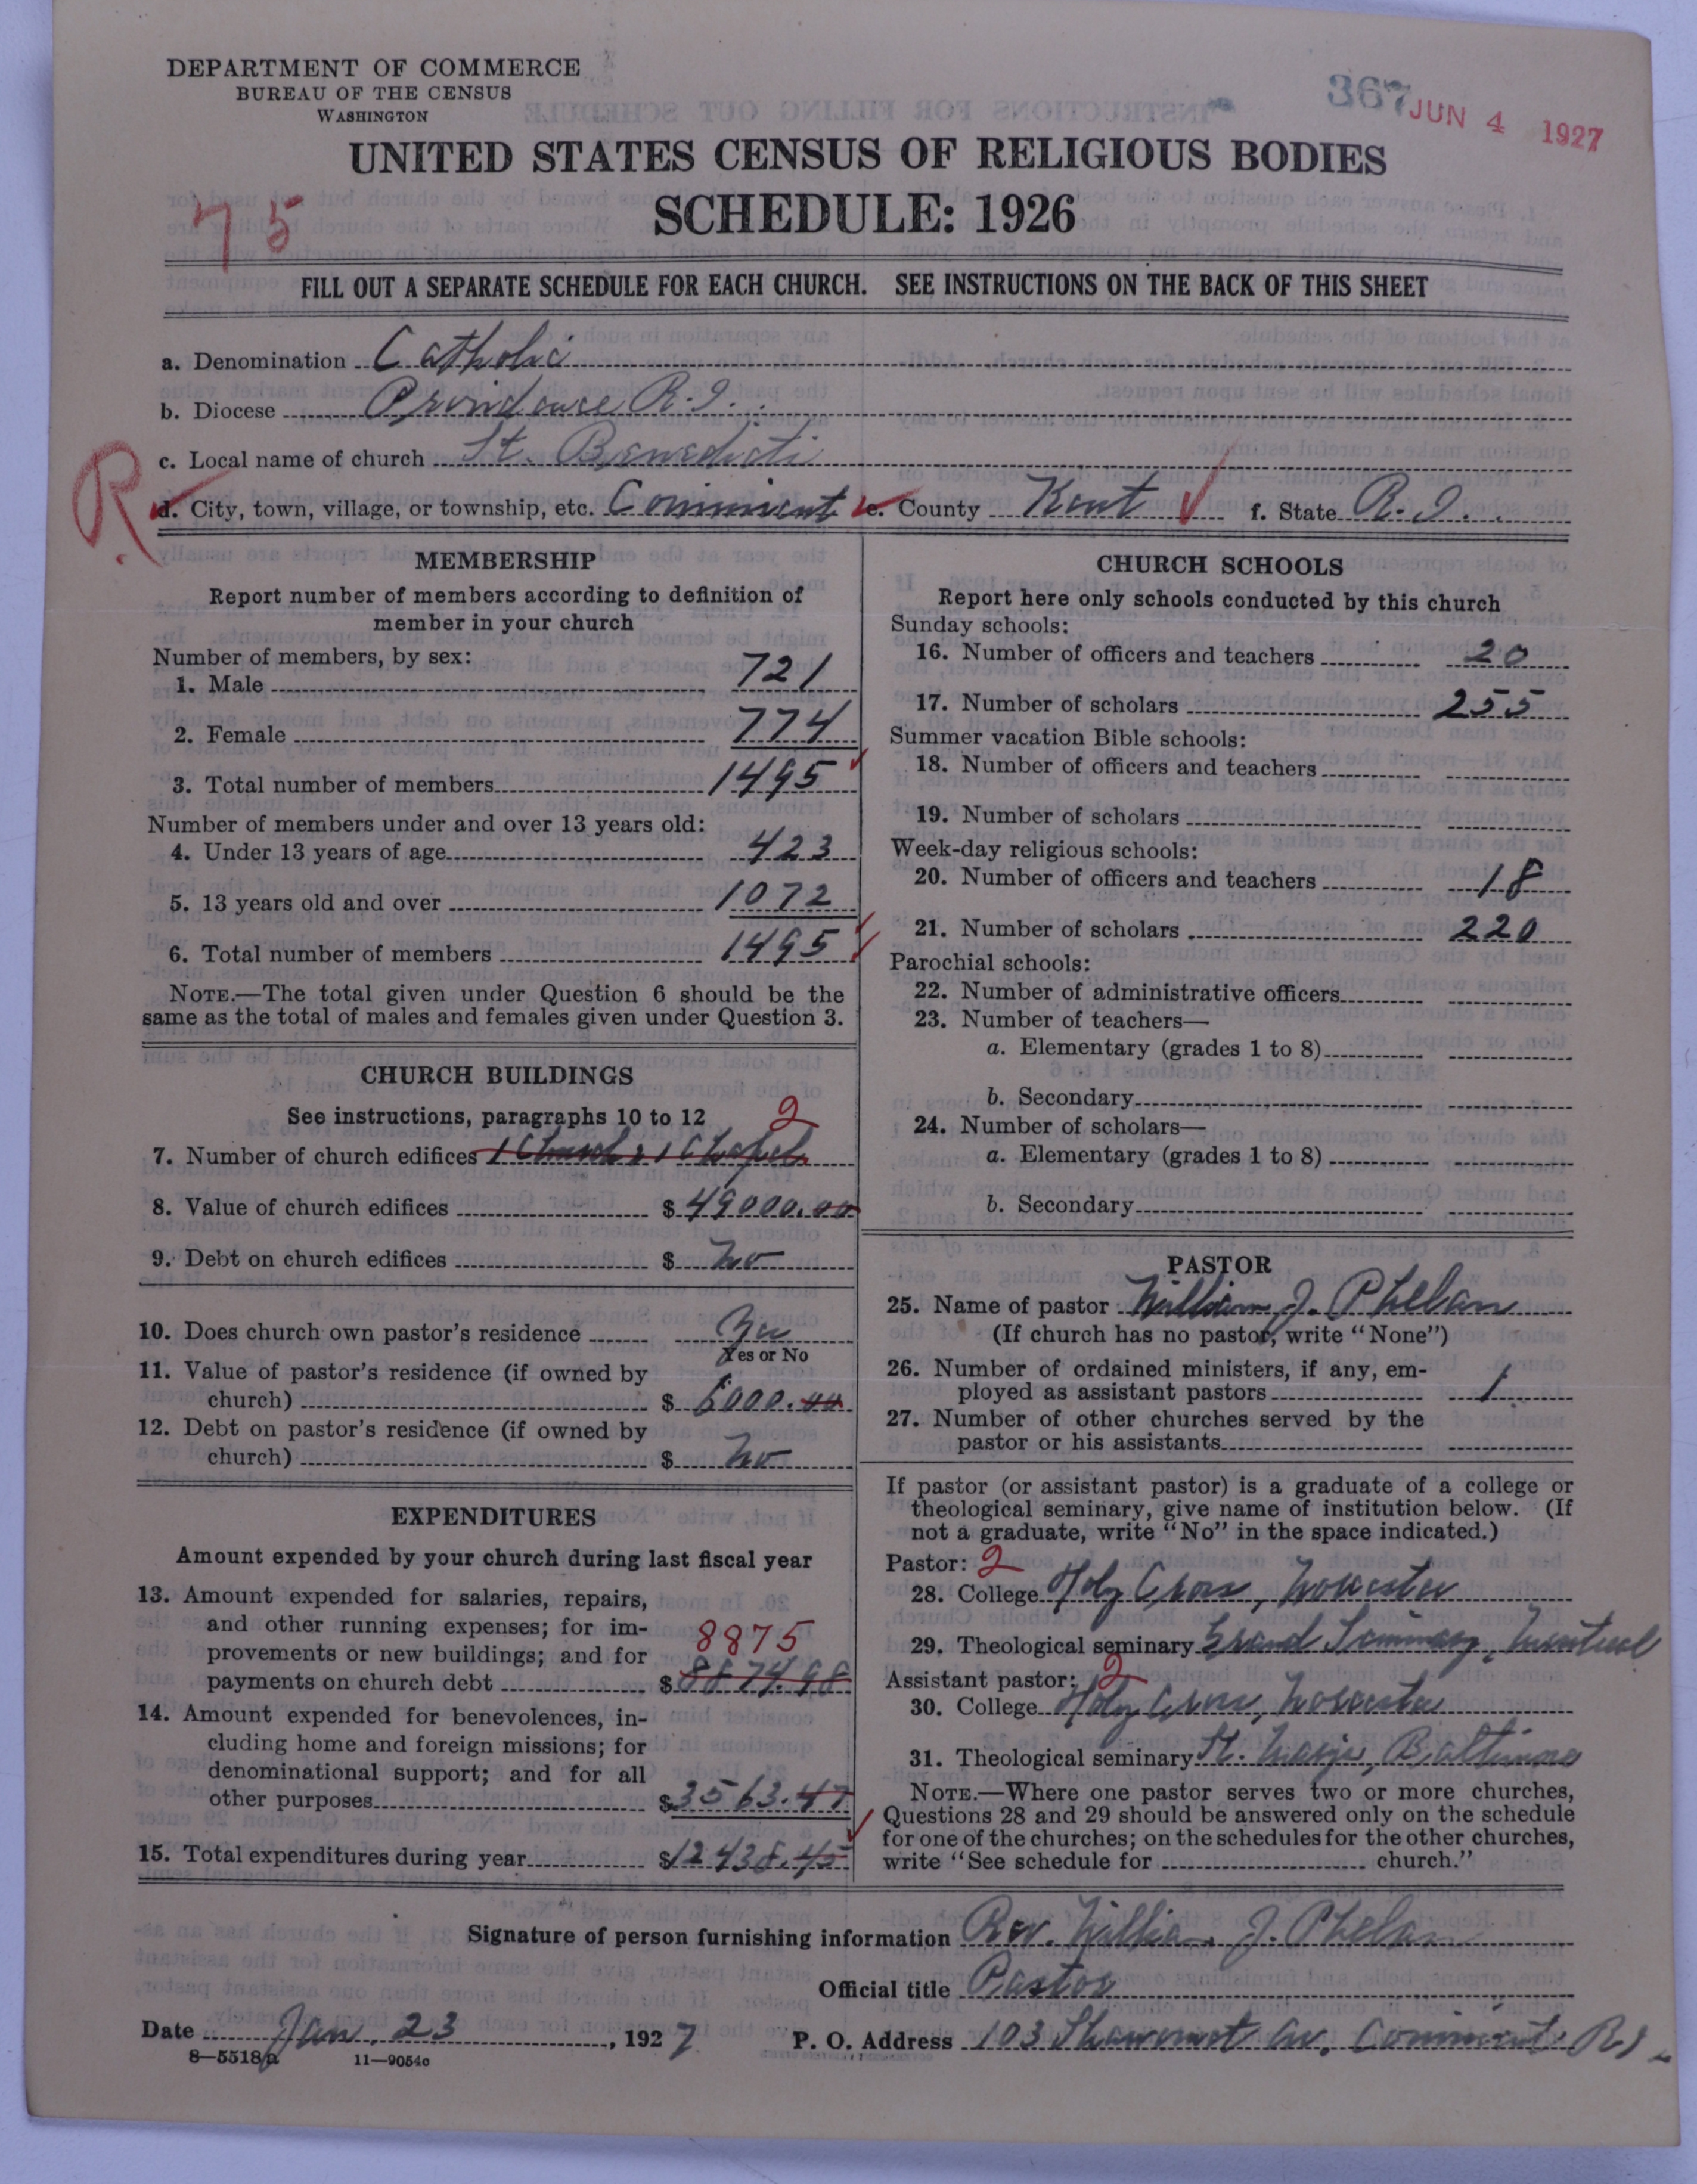 DEPARTMENT OF COMMERCE
BUREAU OF THE CENSUS
WASHINGTON
367 JUN 4 1927
UNITED STATES CENSUS OF RELIGIOUS BODIES
SCHEDULE: 1926
75
FILL OUT A SEPARATE SCHEDULE FOR EACH CHURCH. SEE INSTRUCTIONS ON THE BACK OF THIS SHEET
a. Denomination Catholic
b. Diocese Providence R.I.
c. Local name of church St. Benedict
R
d. City, town, village, or township, etc. Conimicut e. County Kent f. State R.I.
MEMBERSHIP
Report number of members according to definition of
member in your church
Number of members, by sex:
1. Male 721
2. Female 774
3. Total number of members 1495
Number of members under and over 13 years old:
4. Under 13 years of age 423
5. 13 years old and over 1072
6. Total number of members 1495
NOTE.—The total given under Question 6 should be the
same as the total of males and females given under Question 3.
CHURCH BUILDINGS
See instructions, paragraphs 10 to 12 2
7. Number of church edifices 1 Church & 1 Chapel
8. Value of church edifices $ 49000.00
9. Debt on church edifices $ No
10. Does church own pastor's residence Yes
Yes or No
11. Value of pastor's residence (if owned by
church) $ 6000.00
12. Debt on pastor's residence (if owned by
church) $ No
EXPENDITURES
Amount expended by your church during last fiscal year
13. Amount expended for salaries, repairs,
and other running expenses; for im-
provements or new buildings; and for 8875
payments on church debt $ 8874.98
14. Amount expended for benevolences, in-
cluding home and foreign missions; for
denominational support; and for all
other purposes $ 3563.47
15. Total expenditures during year $ 12438.45
CHURCH SCHOOLS
Report here only schools conducted by this church
Sunday schools:
16. Number of officers and teachers 20
17. Number of scholars 255
Summer vacation Bible schools:
18. Number of officers and teachers
19. Number of scholars
Week-day religious schools:
20. Number of officers and teachers 18
21. Number of scholars 220
Parochial schools:
22. Number of administrative officers
23. Number of teachers—
a. Elementary (grades 1 to 8)
b. Secondary
24. Number of scholars—
a. Elementary (grades 1 to 8)
b. Secondary
PASTOR
25. Name of pastor William J. Phelan
(If church has no pastor, write "None")
26. Number of ordained ministers, if any, em-
ployed as assistant pastors 1
27. Number of other churches served by the
pastor or his assistants
If pastor (or assistant pastor) is a graduate of a college or
theological seminary, give name of institution below. (If
not a graduate, write "No" in the space indicated.)
Pastor: 2
28. College Holy Cross, Worcester
29. Theological seminary Grand Seminary, Montreal
Assistant pastor: 2
30. College Holy Cross, Worcester
31. Theological seminary St. Marys, Baltimore
NOTE.—Where one pastor serves two or more churches,
Questions 28 and 29 should be answered only on the schedule
for one of the churches; on the schedules for the other churches,
write "See schedule for church."
Signature of person furnishing information Rev. William J. Phelan
Official title Pastor
Date Jan. 23, 1927 P. O. Address 103 Shawomet Av. Conimicut R.I.
8—5518a 11—9054c